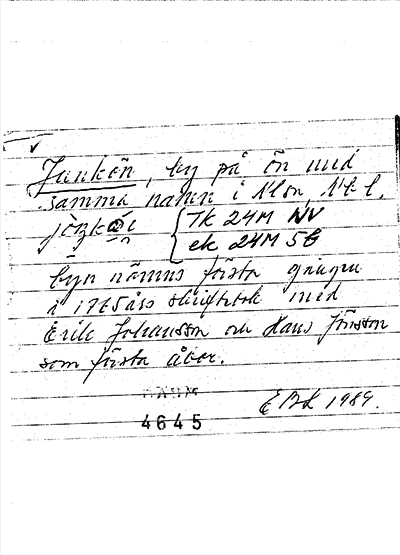 Junkön, by på ön med
samma namn i Nlsn, Nbl.
TK 24M NV
ek 24M 5b
Byn nämns första gången
i 1765 års skiftsbok med
Erik Johansson och Hans Jönsson
som första åbor.
4645
EBL 1989.